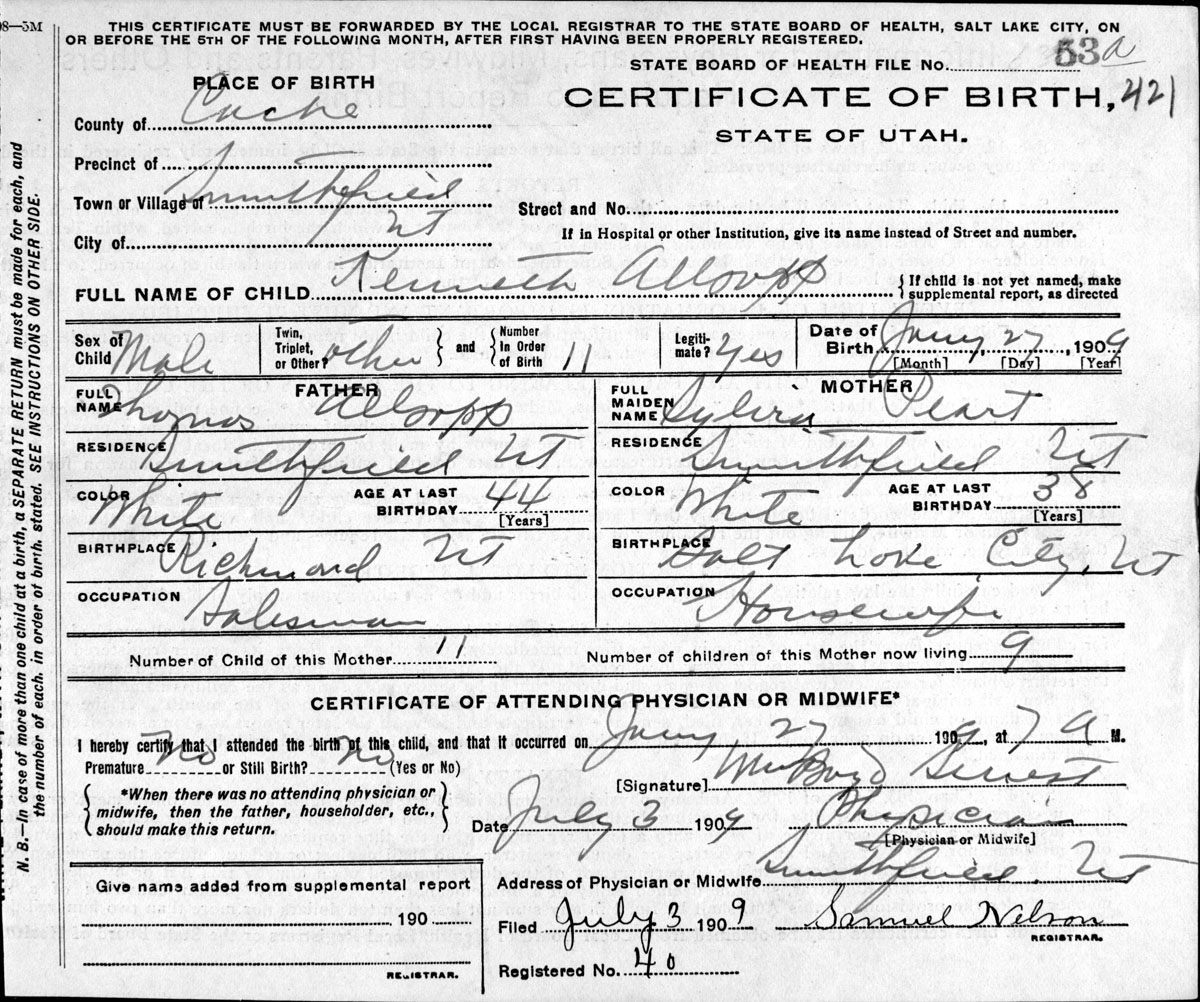 08—5M THIS CERTIFICATE MUST BE FORWARDED BY THE LOCAL REGISTRAR TO THE STATE BOARD OF HEALTH, SALT LAKE CITY, ON
OR BEFORE THE 5TH OF THE FOLLOWING MONTH, AFTER FIRST HAVING BEEN PROPERLY REGISTERED.
STATE BOARD OF HEALTH FILE No. 53a
PLACE OF BIRTH
CERTIFICATE OF BIRTH, 421
County of Cache
STATE OF UTAH.
Precinct of
Town or Village of Smithfield
Street and No.
City of Ut
If in Hospital or other Institution, give its name instead of Street and number.
FULL NAME OF CHILD Kenneth Allsopp { If child is not yet named, make supplemental report, as directed
Sex of Child Male Twin, Triplet, or Other? other } and { Number In Order of Birth 11 Legiti-mate? Yes Date of Birth Juny, 27, 1909
[Month] [Day] [Year]
FATHER MOTHER
FULL NAME Thomas Allsopp FULL MAIDEN NAME Sylvia Peart
RESIDENCE Smithfield Ut RESIDENCE Smithfield Ut
COLOR White AGE AT LAST BIRTHDAY 44 [Years] COLOR White AGE AT LAST BIRTHDAY 38 [Years]
BIRTHPLACE Richmond Ut BIRTHPLACE Salt Lake City, Ut
OCCUPATION Salesman OCCUPATION Housewife
Number of Child of this Mother 11 Number of children of this Mother now living 9
CERTIFICATE OF ATTENDING PHYSICIAN OR MIDWIFE*
I hereby certify that I attended the birth of this child, and that it occurred on Juny 27 1909, at 7 A M.
Premature No or Still Birth? No (Yes or No)
[Signature]
{ *When there was no attending physician or midwife, then the father, householder, etc., should make this return. }
Date July 3 1909 Physician
[Physician or Midwife]
Give name added from supplemental report
Address of Physician or Midwife Smithfield Ut
190
Filed July 3 1909 Samuel Nelson
REGISTRAR.
REGISTRAR.
Registered No. 40
N. B.—In case of more than one child at a birth, a SEPARATE RETURN must be made for each, and
the number of each, in order of birth, stated. SEE INSTRUCTIONS ON OTHER SIDE.